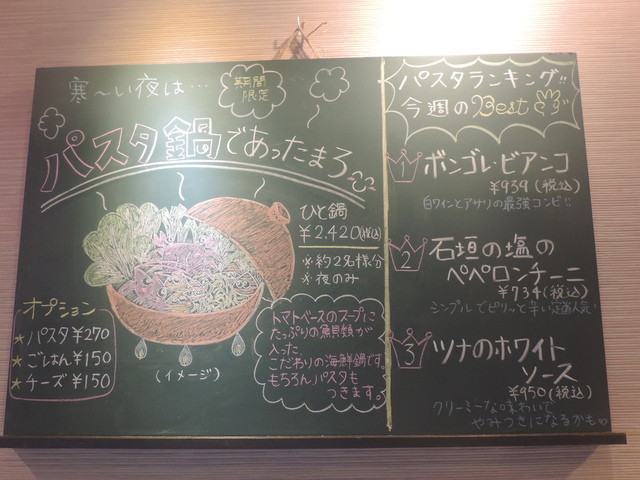 寒〜い夜は…
期間
限定
パスタ鍋であったまろ
ひと鍋
¥2,420(税込)
※約2名様分
※夜のみ
オプション
★パスタ¥270
★ごはん¥150
★チーズ¥150
(イメージ)
トマトベースのスープに
たっぷりの魚貝類が
入った
こだわりの海鮮鍋です。
もちろんパスタも
つきます。
パスタランキング!!
今週のBest3
1 ボンゴレ・ビアンコ
¥939(税込)
白ワインとアサリの最強コンビ!!
2 石垣の塩の
ペペロンチーニ
¥734(税込)
シンプルでピリッと辛い定番人気!
3 ツナのホワイト
ソース
¥950(税込)
クリーミーな味わいで
やみつきになるかも♡